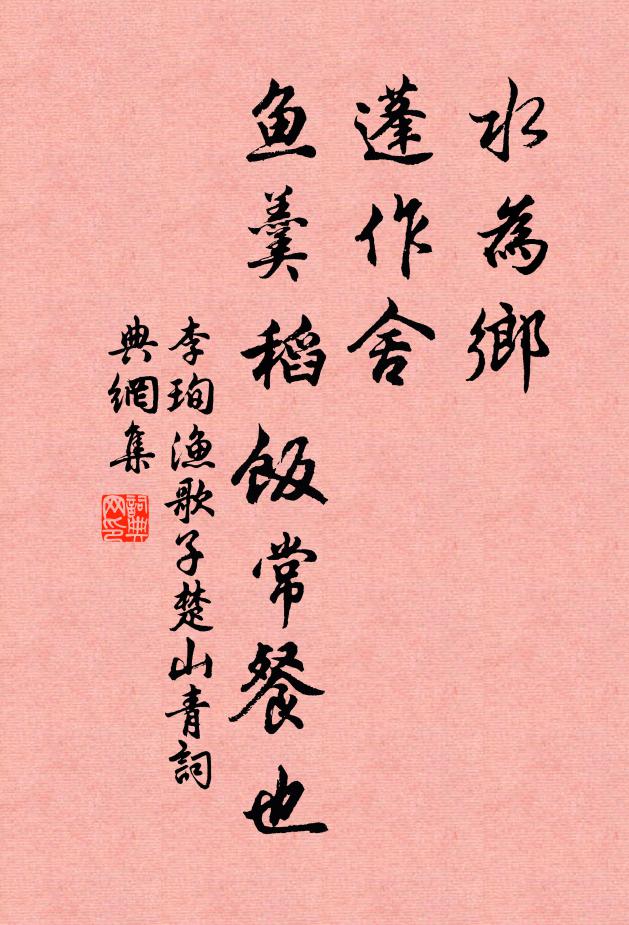 水為鄉
蓬作舍
鱼羹稻飯常餐也
李珣漁歌子楚山青詞
典網集
詞典
网印